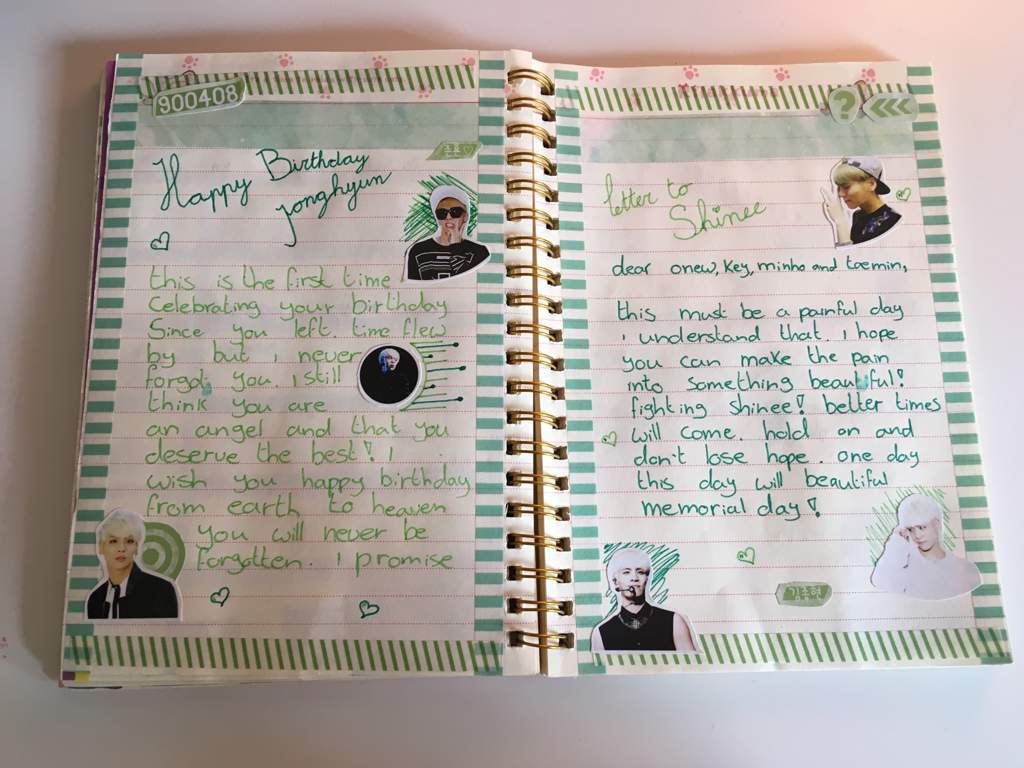 900408
Happy Birthday
jonghyun
this is the first time
Celebrating your birthday
Since you left. time flew
by but i never
forgot you. I still
think you are
an angel and that you
deserve the best! I
wish you happy birthday
from earth to heaven
you will never be
forgotten. I promise
?
letter to
Shinee
dear onew, Key, minho and taemin,
this must be a painful day
i understand that. i hope
you can make the pain
into something beautiful!
fighting shinee! better times
will come. hold on and
don't lose hope. one day
this day will beautiful
memorial day!
김종현